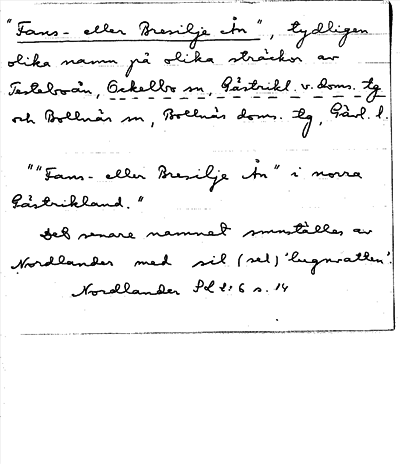 "Fans- eller Bresilje Ån", tydligen
olika namn på olika sträckor av
Testeboån, Ockelbo sn, Gästrikl. v. doms. tg
och Bollnäs sn, Bollnäs doms. tg, Gävl. l.
""Fans- eller Bresilje Ån" i norra
Gästrikland."
Det senare namnet smnställes av
Nordlander med sil (sel) 'lugnvatten'.
Nordlander SL 2:6 s. 14